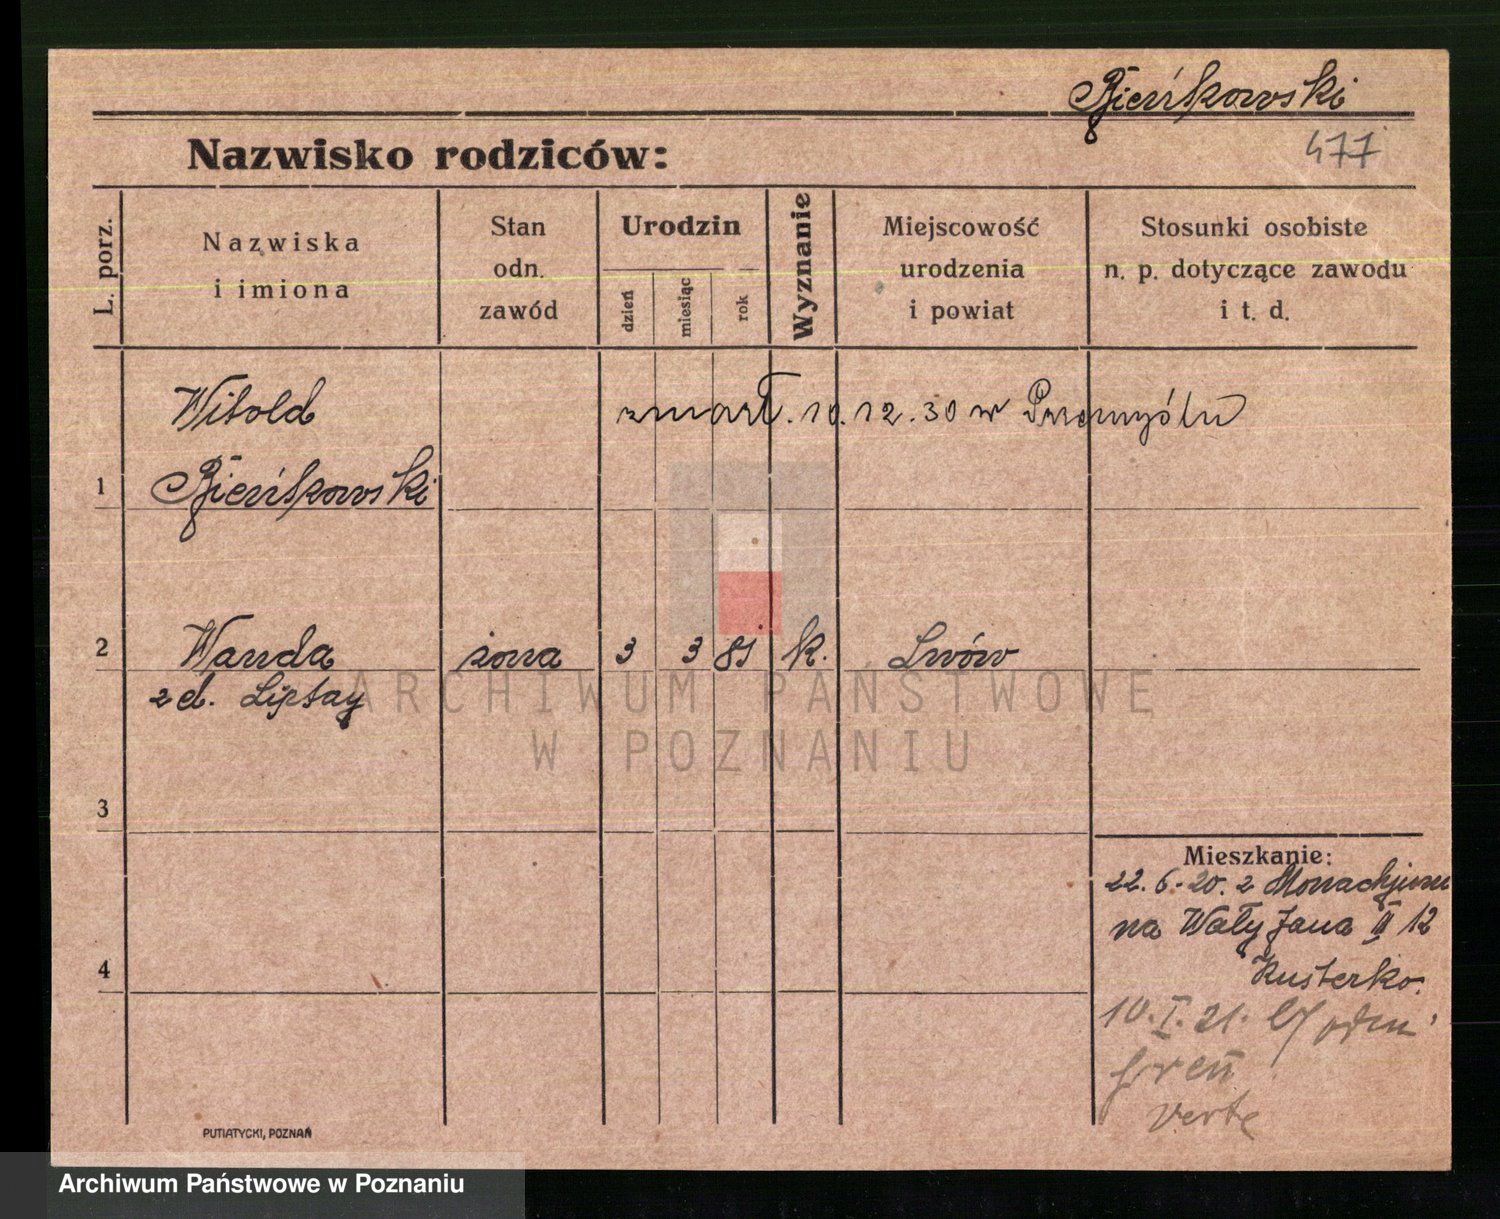 Bieńkowski
477
Nazwisko rodziców:
L. porz.
Nazwiska
i imiona
Stan
odn.
zawód
Urodzin
dzień
miesiąc
rok
Wyznanie
Miejscowość
urodzenia
i powiat
Stosunki osobiste
n. p. dotyczące zawodu
i t. d.
Witold
zmarł. 10.12.30 w Przemyślu
1 Bieńkowski
2 Wanda żona 3 3 81 k. Lwów
z d. Liptay
ARCHIWUM PAŃSTWOWE
W POZNANIU
3
Mieszkanie:
22.6.20. z Monachjum
na Wały Jana III 12
4
Kusterko.
10.I.21.
verte
PUTIATYCKI, POZNAŃ
Archiwum Państwowe w Poznaniu